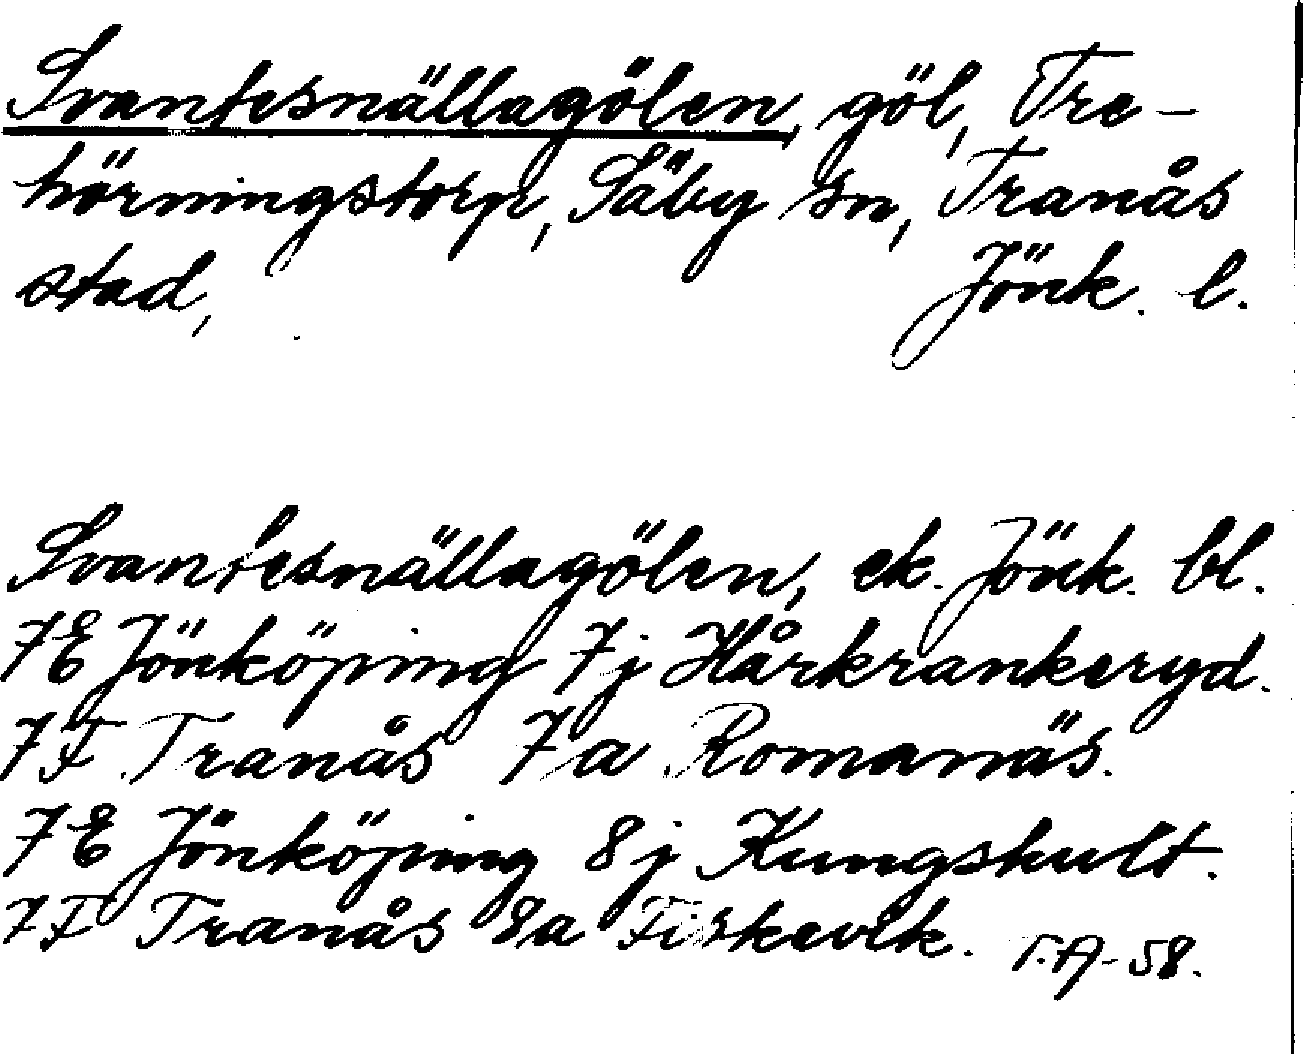 Svantesnällagölen, göl, Tre-
hörningstorp, Säby sn, Tranås
stad, Jönk. l.
Svantesnällagölen, ek. Jönk. bl.
7E Jönköping 7j Hårkrankeryd.
7F Tranås 7a Romanäs.
7E Jönköping 8j Kungshult.
7F Tranås 8a Fiskevik. T.A-58.